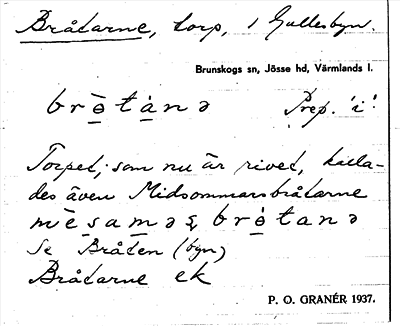 Bråtarne, torp, i Gullesbyn.
Brunskogs sn, Jösse hd, Värmlands l.
brò̱ta̱nə Prep. 'i'!
Torpet, som nu är rivet, kalla-
des även Midsommarsbråtarne
mè̱sam̱əʂ brò̱tanə
Se Bråten (byn)
Bråtarne ek
P. O. GRANÉR 1937.